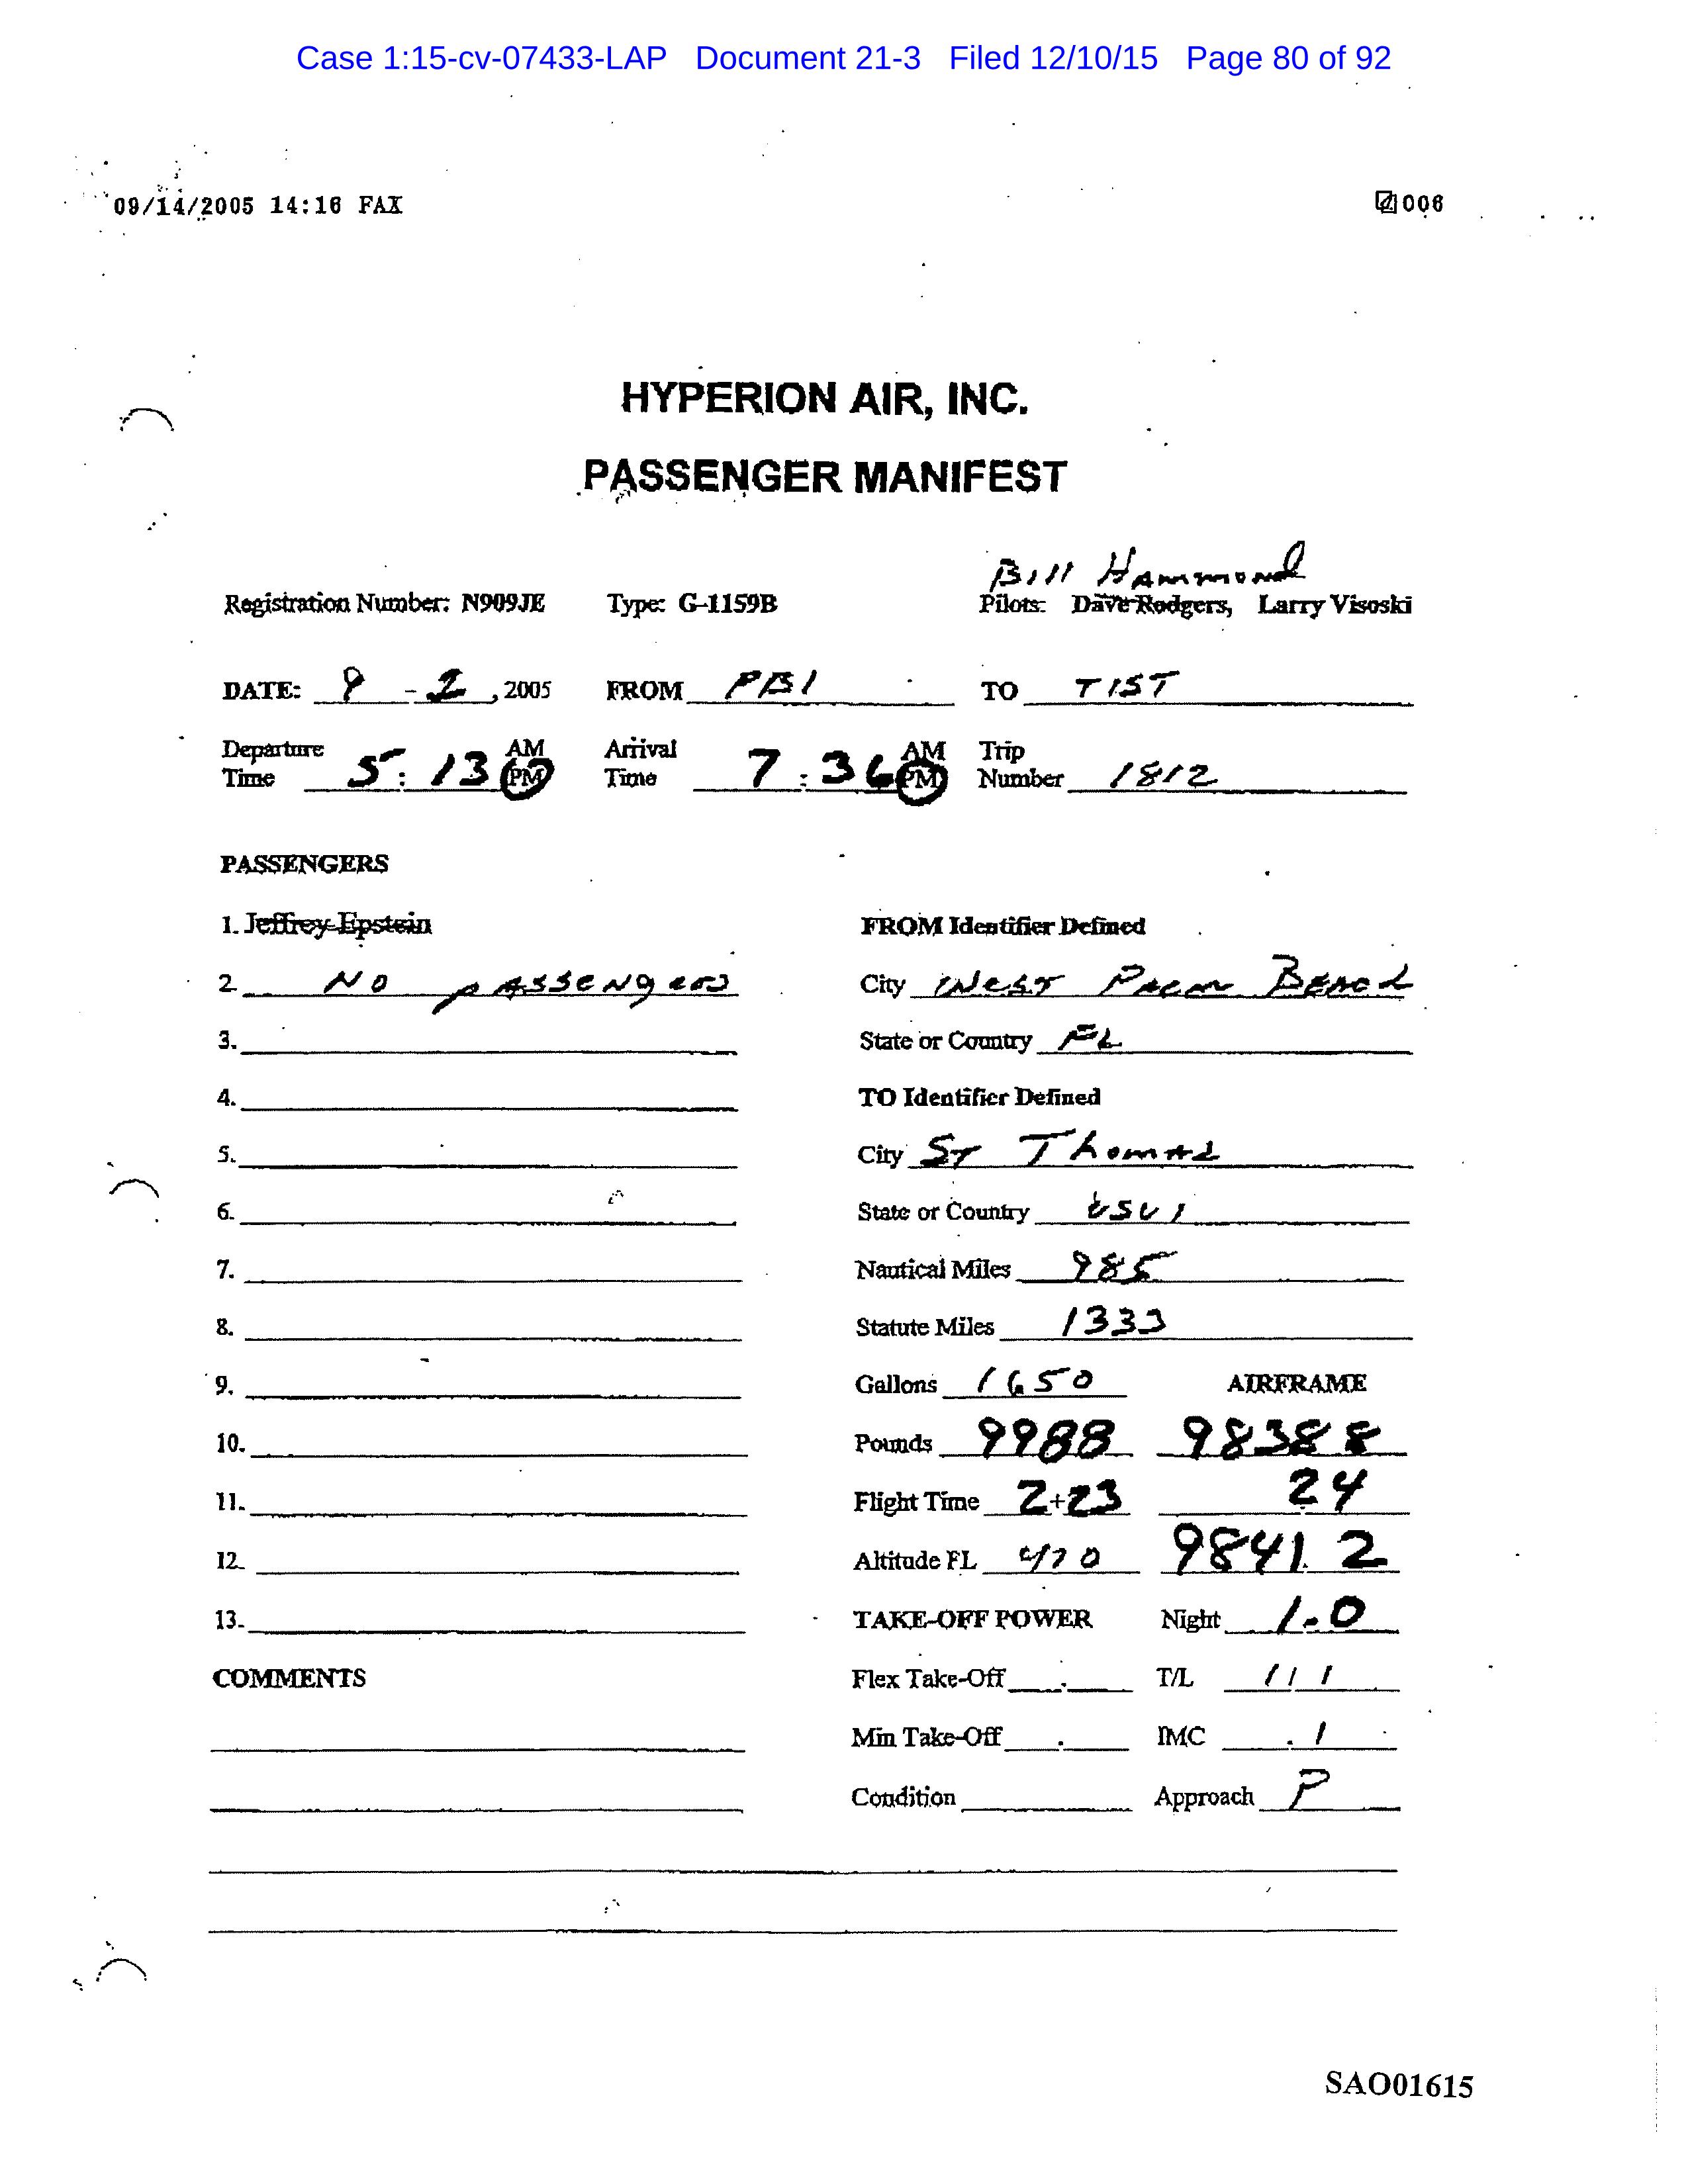 Case 1:15-cv-07433-LAP Document 21-3 Filed 12/10/15 Page 80 of 92
09/14/2005 14:16 FAX 006
HYPERION AIR, INC.
PASSENGER MANIFEST
Bill Hammond
Registration Number: N909JE Type: G-1159B Pilots: Dave Rodgers, Larry Visoski
DATE: 9 - 2, 2005 FROM PBI TO TIST
Departure Time 5:13 AM PM Arrival Time 7:36 AM PM Trip Number 1812
PASSENGERS
1. Jeffrey Epstein FROM Identifier Defined
2. No passengers City West Palm Beach
3. State or Country FL
4. TO Identifier Defined
5. City St Thomas
6. State or Country USVI
7. Nautical Miles 985
8. Statute Miles 1333
9. Gallons 1650 AIRFRAME
10. Pounds 9988 98388
11. Flight Time 2+23 24
12. Altitude FL 470 9841 2
13. TAKE-OFF POWER Night 1.0
COMMENTS Flex Take-Off . T/L 1/1
Min Take-Off . IMC .1
Condition Approach P
SAO01615